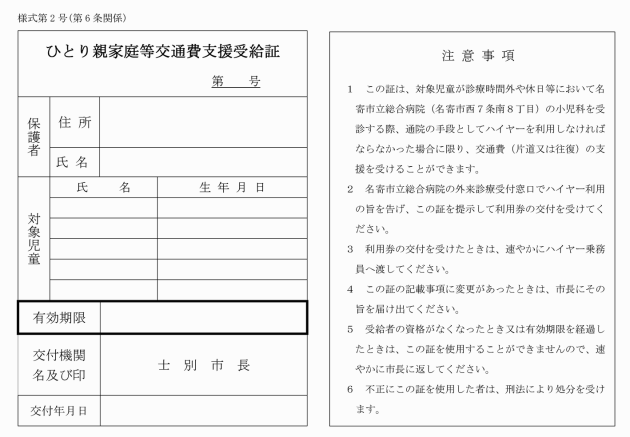 様式第２号(第６条関係)
ひとり親家庭等交通費支援受給証
第　　号
保護者
住　所
氏　名
対象児童
氏　　名
生　年　月　日
有効期限
交付機関
名及び印
士　別　市　長
交付年月日
注　意　事　項
１　この証は、対象児童が診療時間外や休日等において名
寄市立総合病院（名寄市西７条南８丁目）の小児科を受
診する際、通院の手段としてハイヤーを利用しなければ
ならなかった場合に限り、交通費（片道又は往復）の支
援を受けることができます。
２　名寄市立総合病院の外来診療受付窓口でハイヤー利用
の旨を告げ、この証を提示して利用券の交付を受けてく
ださい。
３　利用券の交付を受けたときは、速やかにハイヤー乗務
員へ渡してください。
４　この証の記載事項に変更があったときは、市長にその
旨を届け出てください。
５　受給者の資格がなくなったとき又は有効期限を経過し
たときは、この証を使用することができませんので、速
やかに市長に返してください。
６　不正にこの証を使用した者は、刑法により処分を受け
ます。